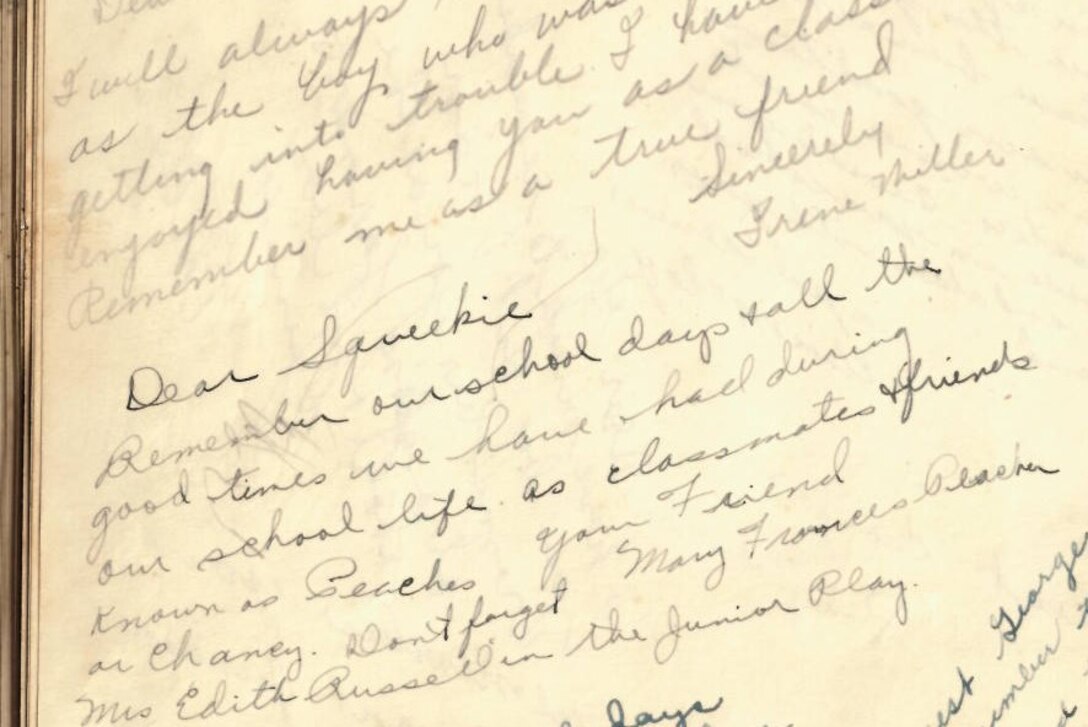 Dear
I will always
as the boy who was
getting into trouble. I have
enjoyed having you as a class
Remember me as a true friend
Sincerely
Irene Miller
Dear Squeekie
Remember our school days & all the
good times we have had during
our school life as classmates & friends
Your Friend
Mary Frances Peacher
Known as Peaches
or Chancy. Don't forget
Mrs Edith Russell in the Junior Play.
days
George